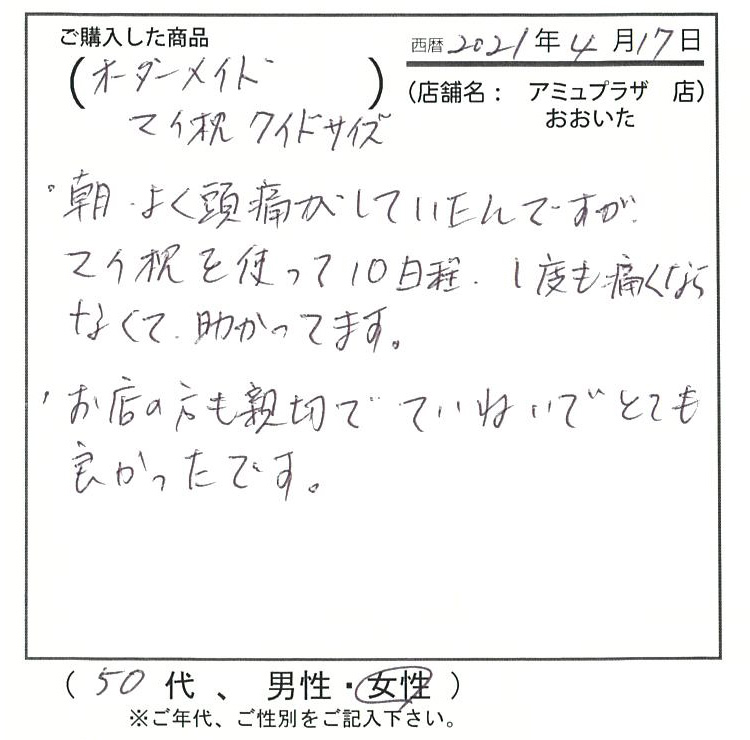 ご購入した商品
西暦 2021年4月17日
(オーダーメイド)
マイ枕 ワイドサイズ
(店舗名： アミュプラザ 店)
おおいた
。朝、よく頭痛がしていたんですが、
マイ枕を使って10日程、1度も痛くなら
なくて、助かってます。
、お店の方も親切で ていねいで とても
良かったです。
(50代、男性・女性)
※ご年代、ご性別をご記入下さい。